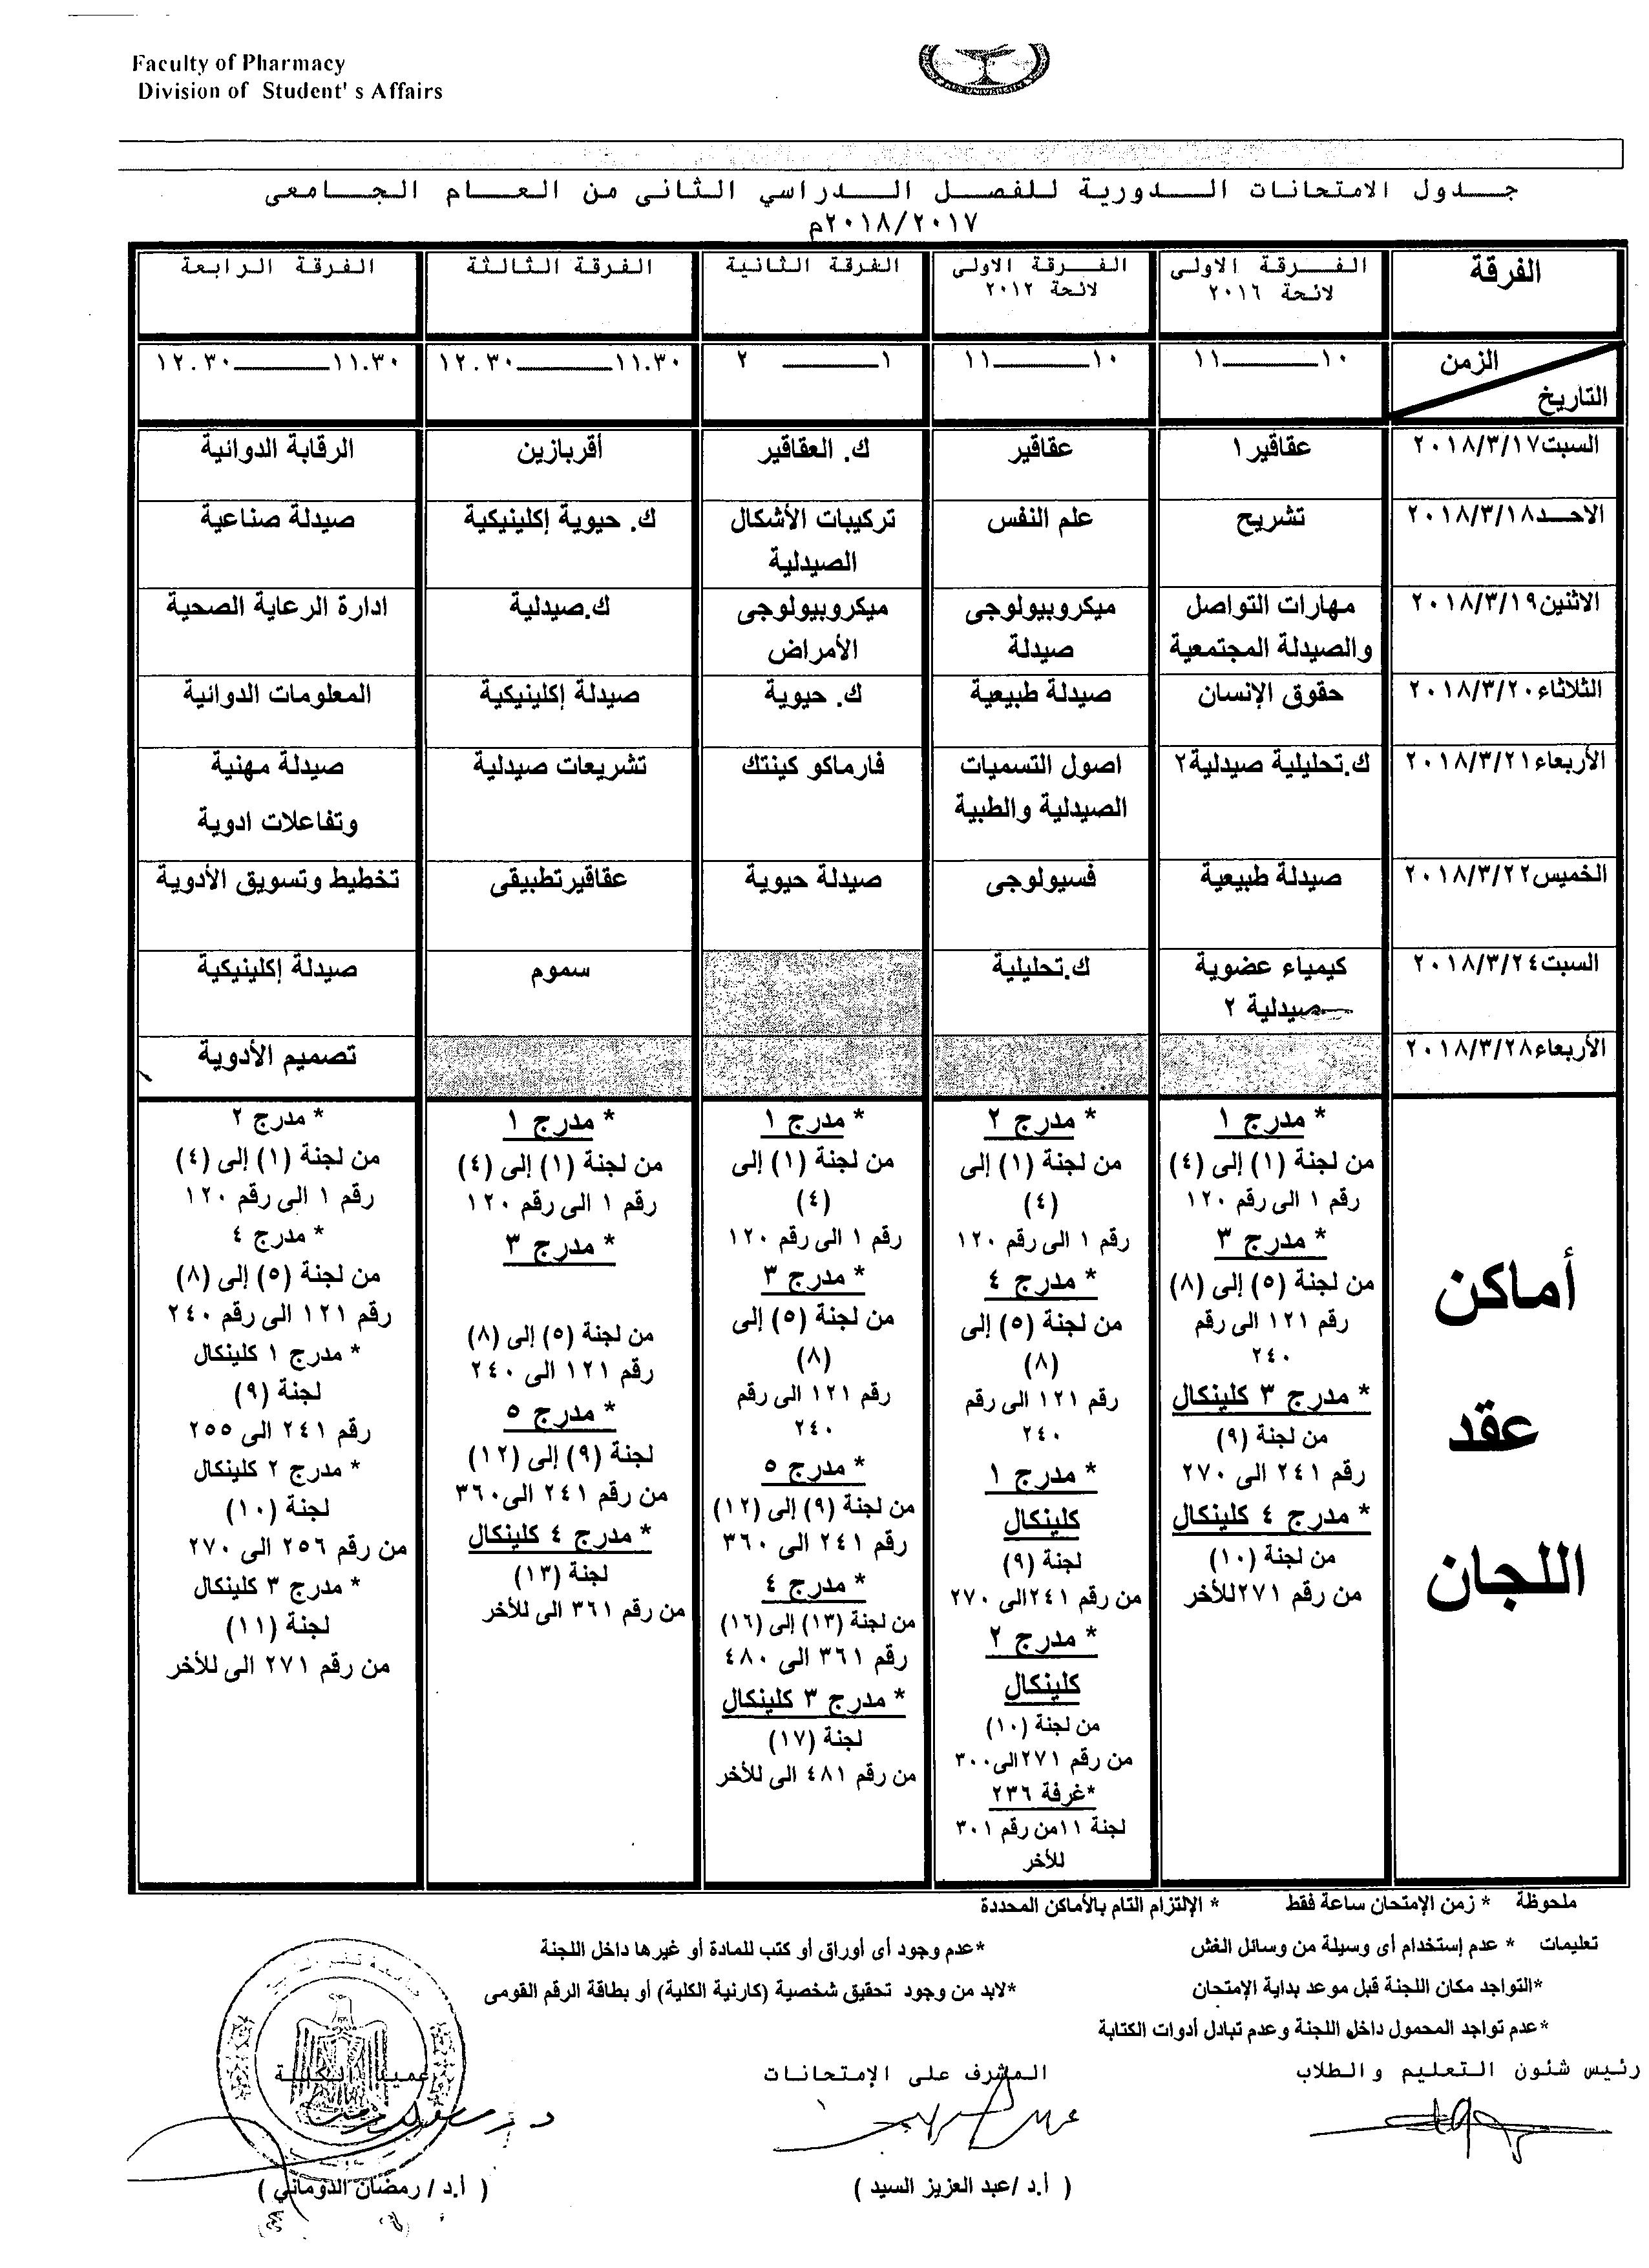 Faculty of Pharmacy
Division of Student' s Affairs
جدول الامتحانات الدورية للفصل الدراسي الثانى من العام الجامعى
٢٠١٨/٢٠١٧م
الفرقة
الفرقة الاولى
لائحة ٢٠١٦
الفرقة الاولى
لائحة ٢٠١٢
الفرقة الثانية
الفرقة الثالثة
الفرقة الرابعة
الزمن
التاريخ
١٠ــــــ١١
١٠ــــــ١١
١ ــــــ ٢
١١.٣٠ــــــ١٢.٣٠
١١.٣٠ــــــ١٢.٣٠
السبت٢٠١٨/٣/١٧
عقاقير١
عقاقير
ك. العقاقير
أقربازين
الرقابة الدوائية
الاحـد٢٠١٨/٣/١٨
تشريح
علم النفس
تركيبات الأشكال
الصيدلية
ك. حيوية إكلينيكية
صيدلة صناعية
الاثنين٢٠١٨/٣/١٩
مهارات التواصل
والصيدلة المجتمعية
ميكروبيولوجى
صيدلة
ميكروبيولوجى
الأمراض
ك.صيدلية
ادارة الرعاية الصحية
الثلاثاء٢٠١٨/٣/٢٠
حقوق الإنسان
صيدلة طبيعية
ك. حيوية
صيدلة إكلينيكية
المعلومات الدوائية
الأربعاء٢٠١٨/٣/٢١
ك.تحليلية صيدلية٢
اصول التسميات
الصيدلية والطبية
فارماكو كينتك
تشريعات صيدلية
صيدلة مهنية
وتفاعلات ادوية
الخميس٢٠١٨/٣/٢٢
صيدلة طبيعية
فسيولوجى
صيدلة حيوية
عقاقيرتطبيقى
تخطيط وتسويق الأدوية
السبت٢٠١٨/٣/٢٤
كيمياء عضوية
صيدلية ٢
ك.تحليلية
سموم
صيدلة إكلينيكية
الأربعاء٢٠١٨/٣/٢٨
تصميم الأدوية
أماكن
عقد
اللجان
* مدرج ١
من لجنة (١) إلى (٤)
رقم ١ الى رقم ١٢٠
* مدرج ٣
من لجنة (٥) إلى (٨)
رقم ١٢١ الى رقم
٢٤٠
* مدرج ٣ كلينكال
من لجنة (٩)
رقم ٢٤١ الى ٢٧٠
* مدرج ٤ كلينكال
من لجنة (١٠)
من رقم ٢٧١للأخر
* مدرج ٢
من لجنة (١) إلى
(٤)
رقم ١ الى رقم ١٢٠
* مدرج ٤
من لجنة (٥) إلى
(٨)
رقم ١٢١ الى رقم
٢٤٠
* مدرج ١
كلينكال
لجنة (٩)
من رقم ٢٤١الى ٢٧٠
* مدرج ٢
كلينكال
من لجنة (١٠)
من رقم ٢٧١الى٣٠٠
*غرفة ٢٣٦
لجنة ١١من رقم ٣٠١
للأخر
* مدرج ١
من لجنة (١) إلى
(٤)
رقم ١ الى رقم ١٢٠
* مدرج ٣
من لجنة (٥) إلى
(٨)
رقم ١٢١ الى رقم
٢٤٠
* مدرج ٥
من لجنة (٩) إلى (١٢)
رقم ٢٤١ الى ٣٦٠
* مدرج ٤
من لجنة (١٣) إلى (١٦)
رقم ٣٦١ الى ٤٨٠
* مدرج ٣ كلينكال
لجنة (١٧)
من رقم ٤٨١ الى للأخر
* مدرج ١
من لجنة (١) إلى (٤)
رقم ١ الى رقم ١٢٠
* مدرج ٣
من لجنة (٥) إلى (٨)
رقم ١٢١ الى ٢٤٠
* مدرج ٥
لجنة (٩) إلى (١٢)
من رقم ٢٤١ الى٣٦٠
* مدرج ٤ كلينكال
لجنة (١٣)
من رقم ٣٦١ الى للأخر
* مدرج ٢
من لجنة (١) إلى (٤)
رقم ١ الى رقم ١٢٠
* مدرج ٤
من لجنة (٥) إلى (٨)
رقم ١٢١ الى رقم ٢٤٠
* مدرج ١ كلينكال
لجنة (٩)
رقم ٢٤١ الى ٢٥٥
* مدرج ٢ كلينكال
لجنة (١٠)
من رقم ٢٥٦ الى ٢٧٠
* مدرج ٣ كلينكال
لجنة (١١)
من رقم ٢٧١ الى للأخر
ملحوظة * زمن الإمتحان ساعة فقط * الإلتزام التام بالأماكن المحددة
تعليمات * عدم إستخدام أى وسيلة من وسائل الغش *عدم وجود أى أوراق أو كتب للمادة أو غيرها داخل اللجنة
*التواجد مكان اللجنة قبل موعد بداية الإمتحان *لابد من وجود تحقيق شخصية (كارنية الكلية) أو بطاقة الرقم القومى
*عدم تواجد المحمول داخل اللجنة وعدم تبادل أدوات الكتابة
رئيس شئون التعليم والطلاب
المشرف على الإمتحانات
عميد الكلية
( أ.د /عبد العزيز السيد )
( أ.د / رمضان الدوماني )